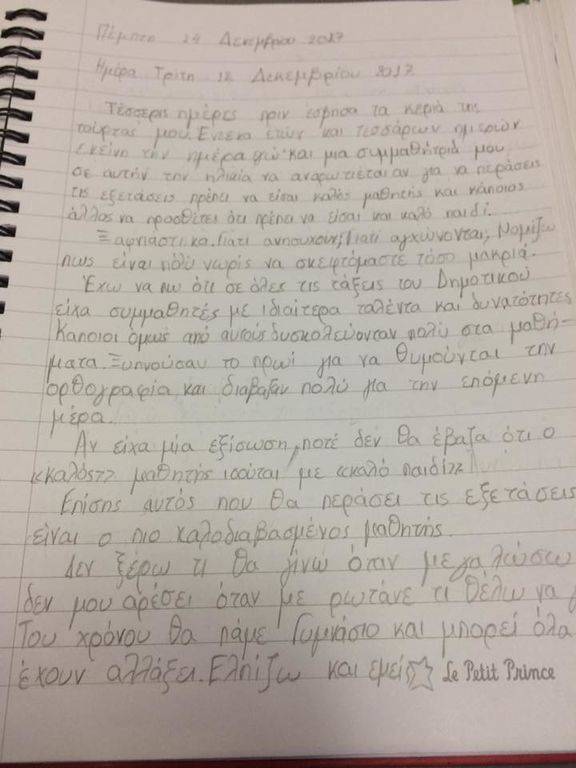 Πέμπτη 14 Δεκεμβρίου 2017
Ημέρα Τρίτη 12 Δεκεμβρίου 2017
Τέσσερις ημέρες πριν έσβησα τα κεριά της
τούρτας μου. Έντεκα ετών και τεσσάρων ημερών
εκείνη την ημέρα ακούω και μια συμμαθήτριά μου
σε αυτήν την ηλικία να αναρωτιέται αν για να περάσεις
τις εξετάσεις πρέπει να είσαι καλός μαθητής και κάποιος
άλλος να προσθέτει ότι πρέπει να είσαι και καλό παιδί.
Ξαφνιάστηκα. Γιατί ανησυχούν; Γιατί αγχώνονται; Νομίζω
πως είναι πολύ νωρίς να σκεφτόμαστε τόσο μακριά.
Έχω να πω ότι σε όλες τις τάξεις του Δημοτικού
είχα συμμαθητές με ιδιαίτερα ταλέντα και δυνατότητες
Κάποιοι όμως από αυτούς δυσκολεύονταν πολύ στα μαθή-
ματα. Ξυπνούσαν το πρωί για να θυμούνται την
ορθογραφία και διάβαζαν πολύ για την επόμενη
μέρα.
Αν είχα μία εξίσωση, ποτέ δεν θα έβαζα ότι ο
<<καλός>> μαθητής ισούται με <<καλό παιδί>>
Επίσης αυτός που θα περάσει τις εξετάσεις
είναι ο πιο καλοδιαβασμένος μαθητής.
Δεν ξέρω τι θα γίνω όταν μεγαλώσω
δεν μου αρέσει όταν με ρωτάνε τι θέλω να
Του χρόνου θα πάμε Γυμνάσιο και μπορεί όλα
έχουν αλλάξει. Ελπίζω και εμείς Le Petit Prince